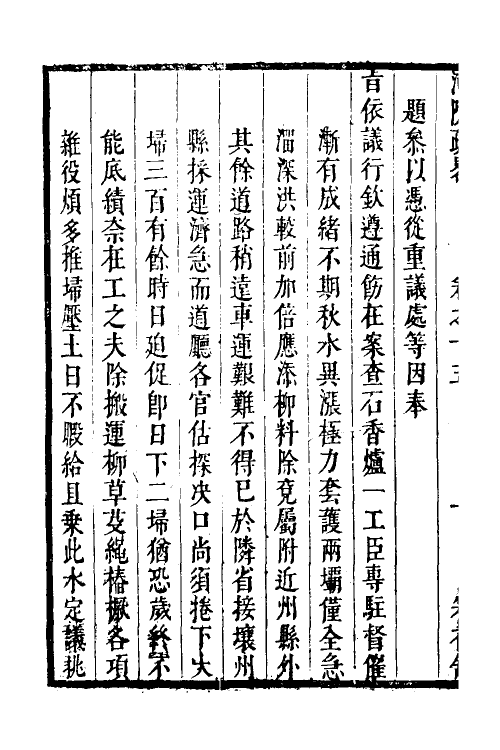 題叅以憑從重議處等因奉
旨依議行欽遵通飭在案查石香爐一工臣專駐督催
漸有成緒不期秋水異漲極力套護兩壩僅全急
溜深洪較前加倍應添柳料除兗屬附近州縣外
其餘道路稍遠車運艱難不得已於隣省接壤州
縣採運濟急而道廳各官估探决口尚須捲下大
埽三百有餘時日廹促卽日下二埽猶恐歲終不
能底績奈在工之夫除搬運柳草芟繩樁橛各項
雜役煩多推埽壓土日不暇給且乘此水定議挑